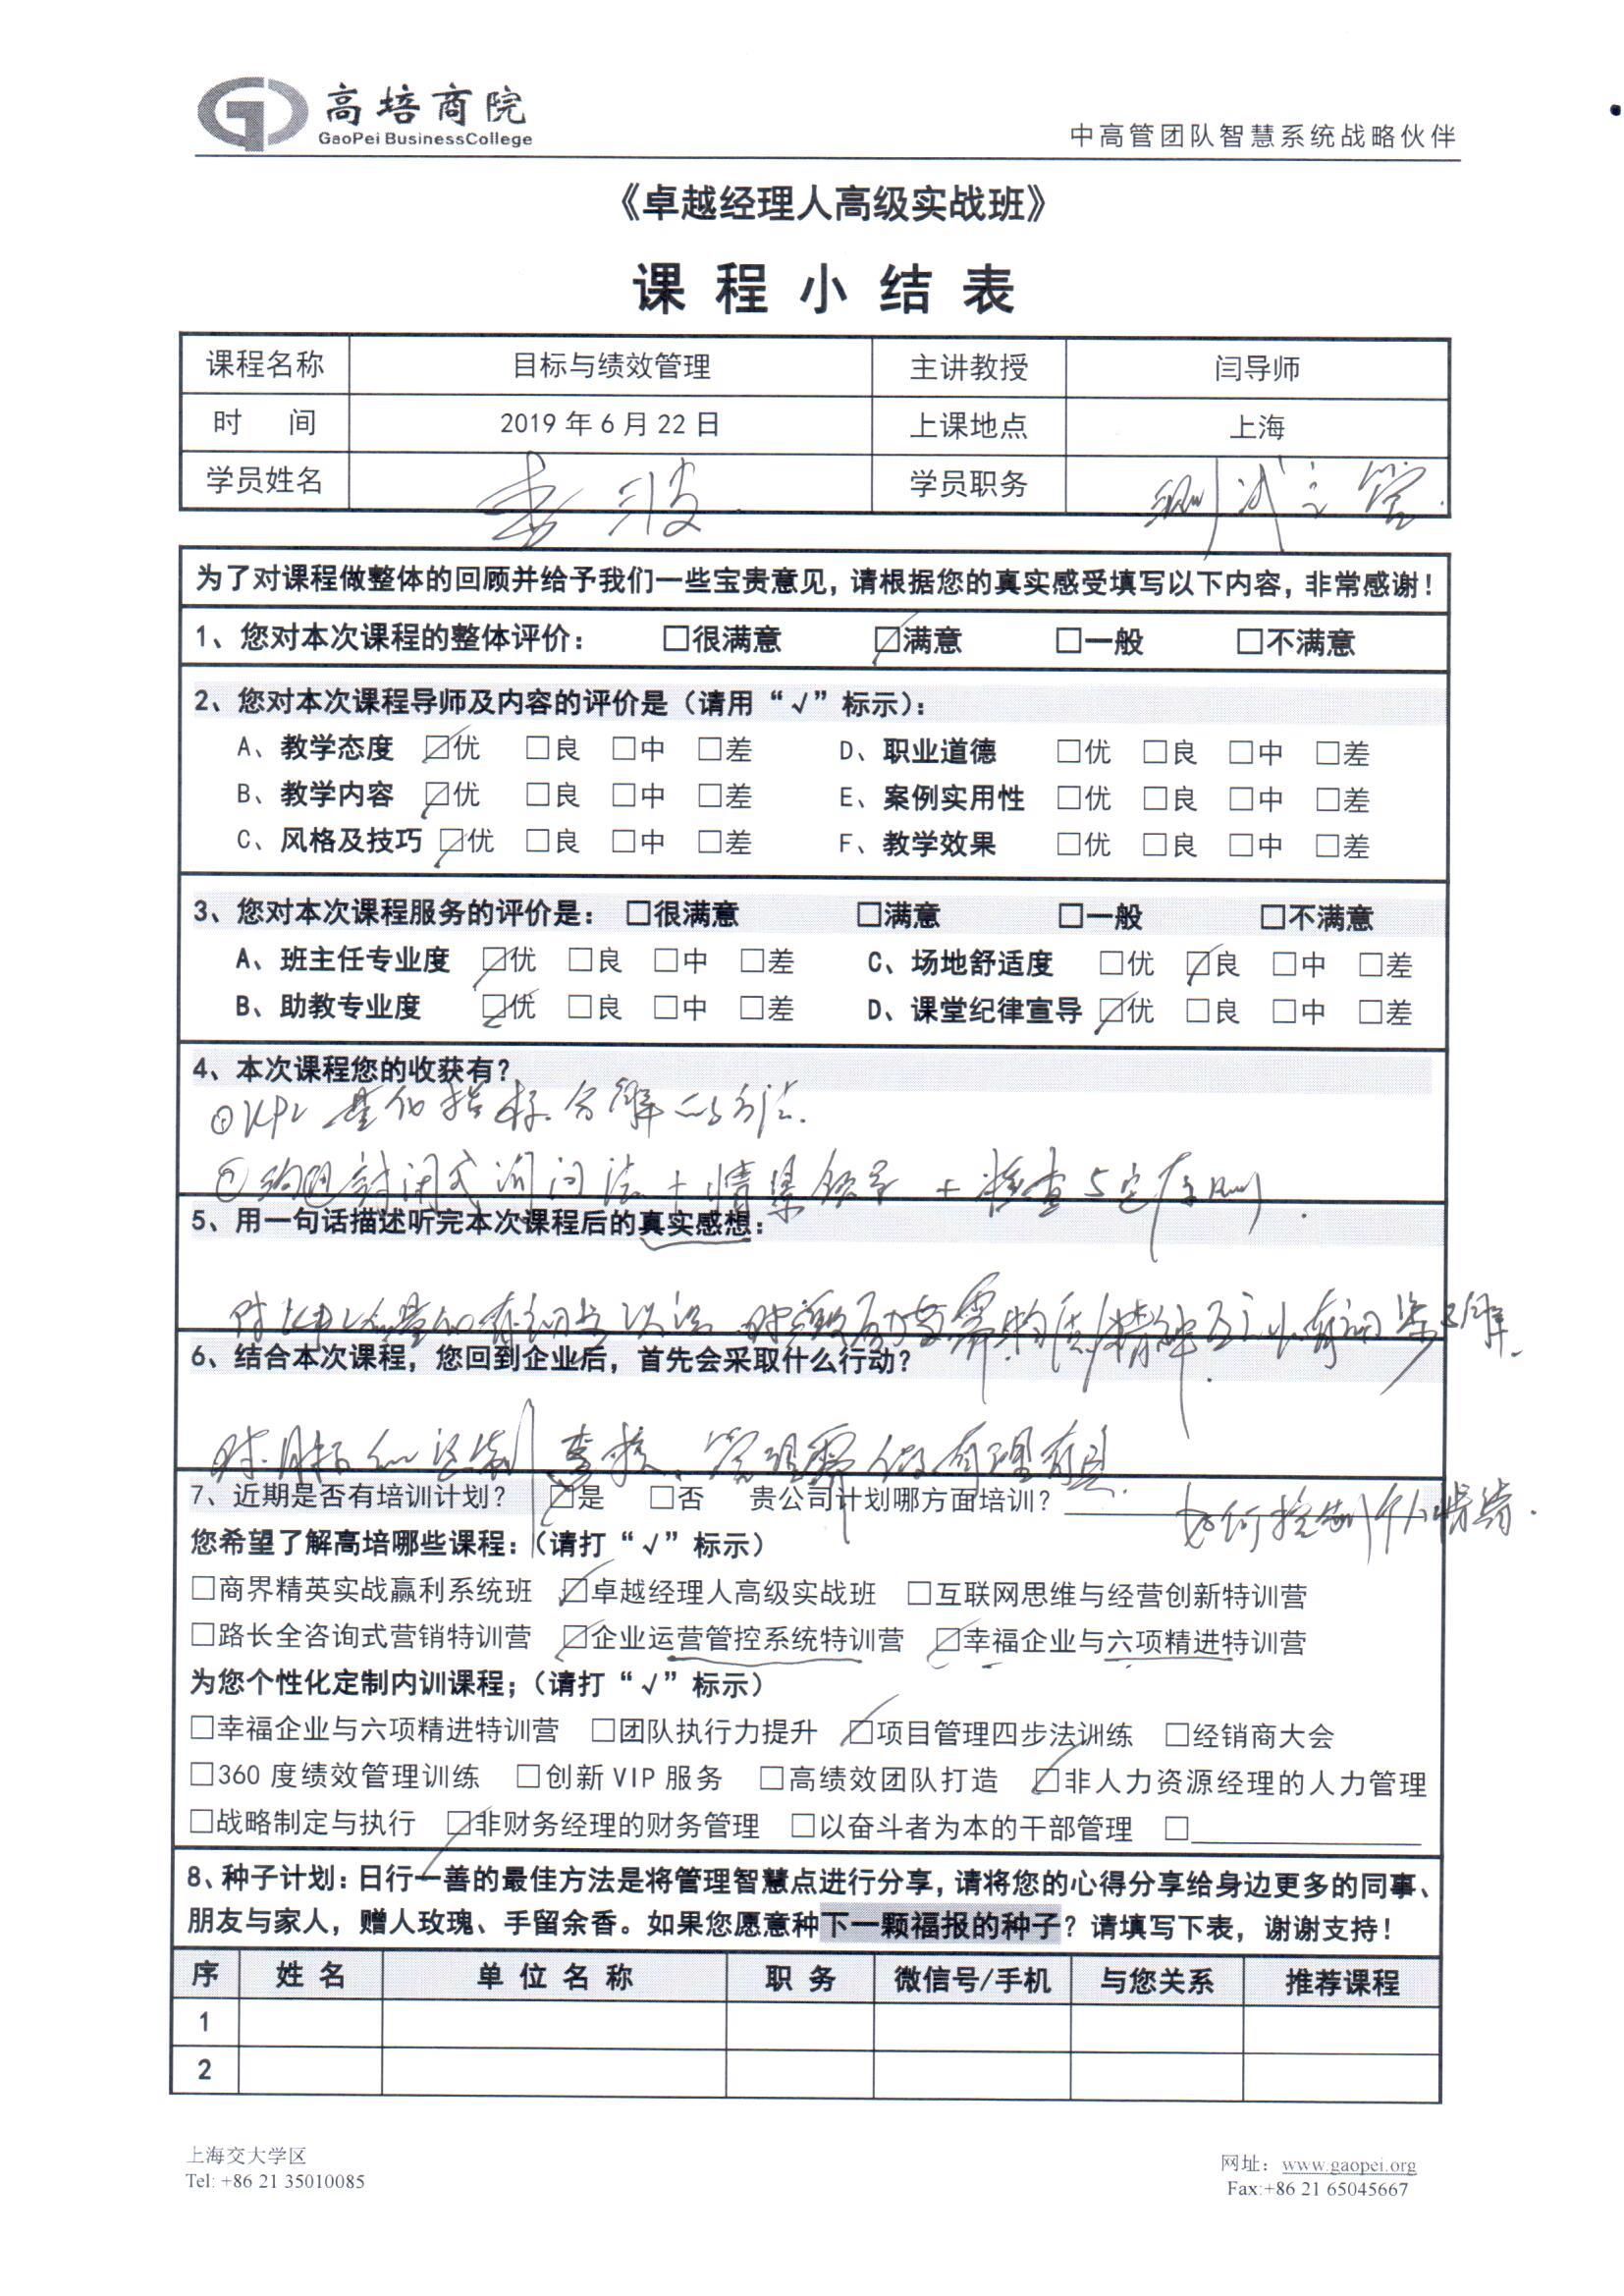 高培商院
GaoPei BusinessCollege
中高管团队智慧系统战略伙伴
《卓越经理人高级实战班》
课 程 小 结 表
课程名称 目标与绩效管理 主讲教授 闫导师
时 间 2019 年 6 月 22 日 上课地点 上海
学员姓名 李波 学员职务 测试主管
为了对课程做整体的回顾并给予我们一些宝贵意见，请根据您的真实感受填写以下内容，非常感谢！
1、您对本次课程的整体评价： □很满意 ☑满意 □一般 □不满意
2、您对本次课程导师及内容的评价是（请用“√”标示）：
A、教学态度 ☑优 □良 □中 □差 D、职业道德 □优 □良 □中 □差
B、教学内容 ☑优 □良 □中 □差 E、案例实用性 □优 □良 □中 □差
C、风格及技巧 ☑优 □良 □中 □差 F、教学效果 □优 □良 □中 □差
3、您对本次课程服务的评价是： □很满意 □满意 □一般 □不满意
A、班主任专业度 ☑优 □良 □中 □差 C、场地舒适度 □优 ☑良 □中 □差
B、助教专业度 ☑优 □良 □中 □差 D、课堂纪律宣导 ☑优 □良 □中 □差
4、本次课程您的收获有？
①KPI 指标分解的方法.
② 封闭式询问法 + 情景领导 + 检查
5、用一句话描述听完本次课程后的真实感想：
6、结合本次课程，您回到企业后，首先会采取什么行动？
对目标 考核、管理 有理有据.
7、近期是否有培训计划？ ☑是 □否 贵公司计划哪方面培训？ 如何控制个人情绪.
您希望了解高培哪些课程：（请打“√”标示）
□商界精英实战赢利系统班 ☑卓越经理人高级实战班 □互联网思维与经营创新特训营
□路长全咨询式营销特训营 ☑企业运营管控系统特训营 ☑幸福企业与六项精进特训营
为您个性化定制内训课程；（请打“√”标示）
□幸福企业与六项精进特训营 □团队执行力提升 ☑项目管理四步法训练 □经销商大会
□360 度绩效管理训练 □创新 VIP 服务 □高绩效团队打造 ☑非人力资源经理的人力管理
□战略制定与执行 ☑非财务经理的财务管理 □以奋斗者为本的干部管理 □
8、种子计划：日行一善的最佳方法是将管理智慧点进行分享，请将您的心得分享给身边更多的同事、
朋友与家人，赠人玫瑰、手留余香。如果您愿意种下一颗福报的种子？请填写下表，谢谢支持！
序 姓 名 单 位 名 称 职 务 微信号/手机 与您关系 推荐课程
1
2
上海交大学区
Tel: +86 21 35010085
网址：www.gaopei.org
Fax:+86 21 65045667